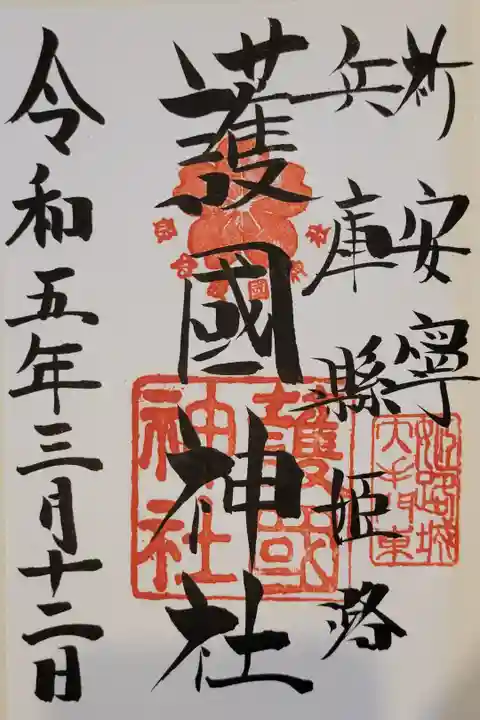 祈安寧
兵庫縣姫路
護國神社
令和五年三月十二日
護國
神社
姫路城
大手東